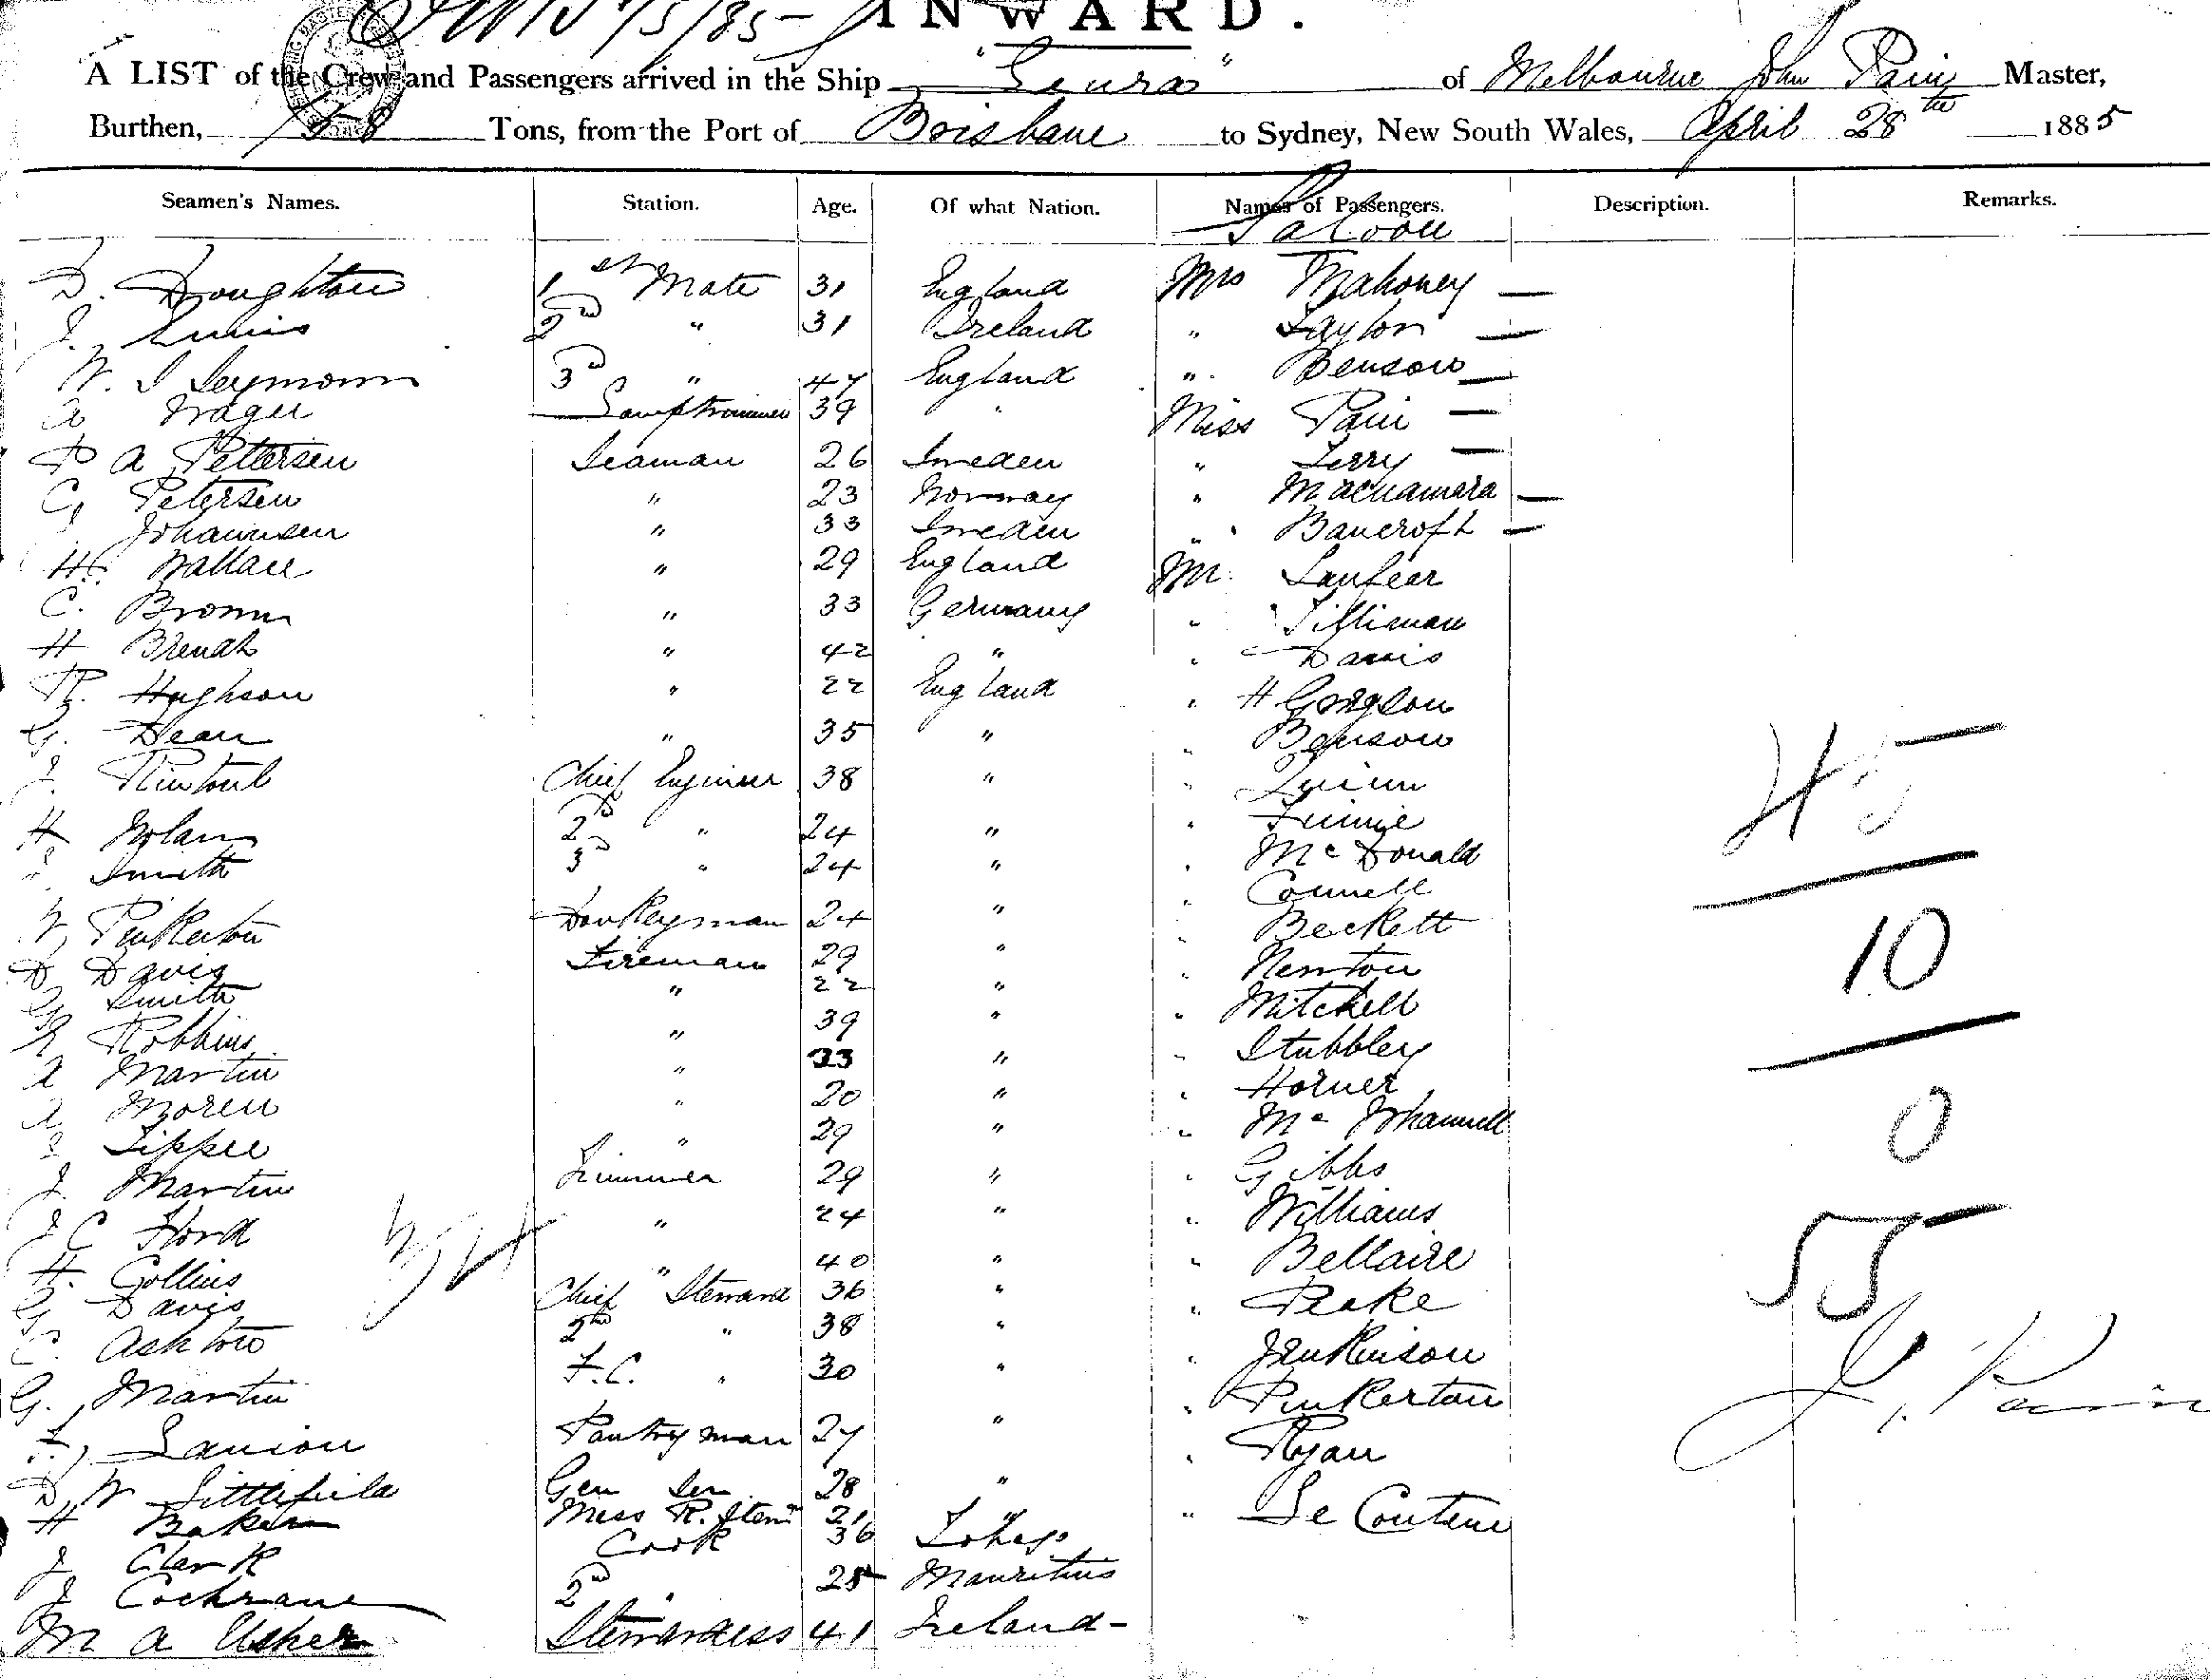 INWARD.
A LIST of the Crew and Passengers arrived in the Ship " " of Melbourne John Pain Master,
Burthen, Tons, from the Port of Brisbane to Sydney, New South Wales, April 28th 1885
Seamen's Names. Station. Age. Of what Nation. Names of Passengers. Description. Remarks.
Saloon
D. Houghton 1st Mate 31 England Mrs Mahoney —
J. 2nd " 31 Ireland " Taylor —
W. J Seymour 3rd " 47 England " Benson —
A Lamptrimmer 39 " Miss Pain —
P A Pettersen Seaman 26 Sweden " Terry —
C, Petersen " 23 Norway " Macnamara —
Johannsen " 33 Sweden " Bancroft —
H. Wallace " 29 England Mr. Lanfear
C. Brown " 33 Germany " Silliman
H Brendt " 42 " " Davis
R. Hughson " 22 England " H
G. Dean " 35 " " Benson
J. Rintoul Chief Engineer 38 " " Quinn
H Nolan 2nd " 24 " "
Smith 3rd " 24 " " McDonald
" Connell
W, Pinkerton Donkeyman 24 " " Beckett
D Davis Fireman 29 " " Newton
G Smith " 22 " " Mitchell
Robbins " 39 " " Stubbley
A Martin " 33 " " Horner
A Moren " 20 " " Mc
Tippee " 29 " " Gibbs
J. Martin Trimmer 29 " " Williams
J C Hord " 24 " " Bellaire
H. Collins " 40 "
G Davis Chief Steward 36 " " Peake
C. Ashton 2nd " 38 " " Jenkinson
G. Martin F.C. " 30 " " Pinkerton
F, Pantryman 27 " " Ryan
D W Littlefield Gen Ser 28 " " Le Couteur
H Baker Mess R. Stew 21 "
J Clark Cook 36
J Cochrane 2nd " 25 Mauritius
M A Usher Stewardess 41 Ireland -
45
10
0
55
J. Pain